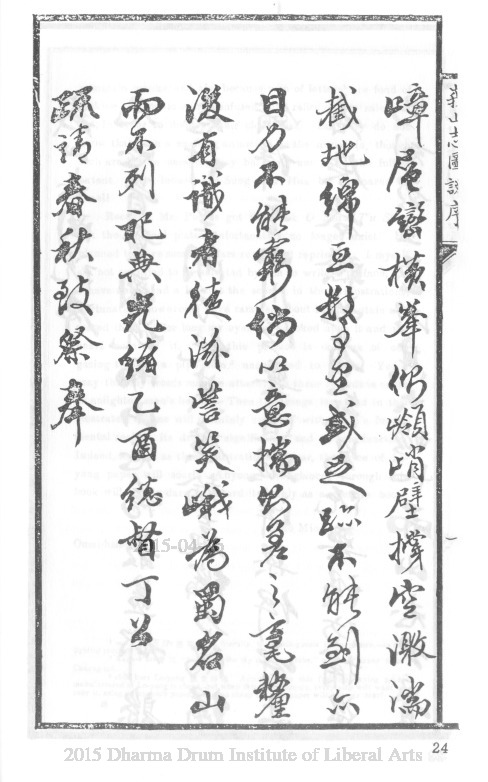 峩山志圖說序
嶂層巒橫峯側嶺峭壁撐空激湍
截地綿亙數百里或足跡不能到亦
目力不能窮倘以意揣則差之毫釐
有識者徒滋訾笑峨為蜀名山
而不列祀典光緒乙酉總督丁公
疏請春秋致祭舉
2015-04-
24
2015 Dharma Drum Institute of Liberal Arts